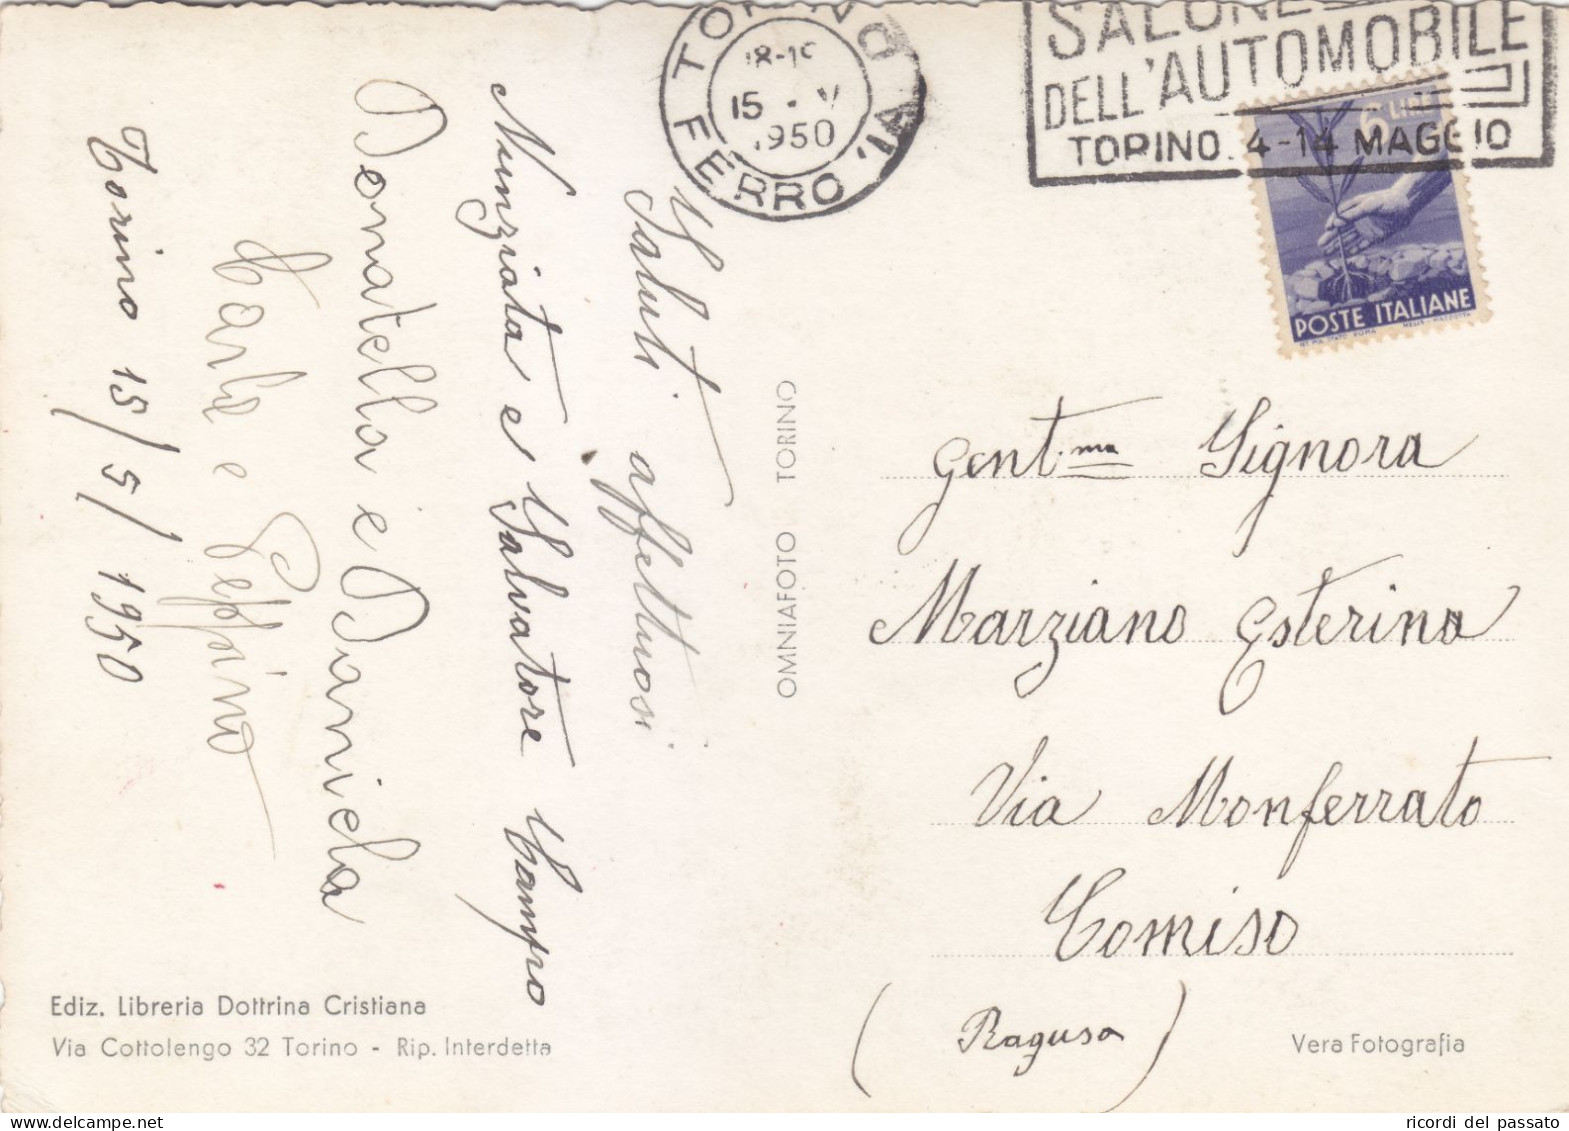 TORINO
18-19
15 . V
1950
FERROVIA
SALONE
DELL'AUTOMOBILE
TORINO. 4-14 MAGGIO
6 LIRE
POSTE ITALIANE
Saluti affettuosi
Nunziata e Salvatore Campo
Donatella e Daniela
Carla e Peppino
Torino 15/5/1950
OMNIAFOTO TORINO
Gent.ma Signora
Marziano Esterina
Via Monferrato
Comiso
(Ragusa)
Ediz. Libreria Dottrina Cristiana
Via Cottolengo 32 Torino - Rip. Interdetta
Vera Fotografia
ricordi del passato